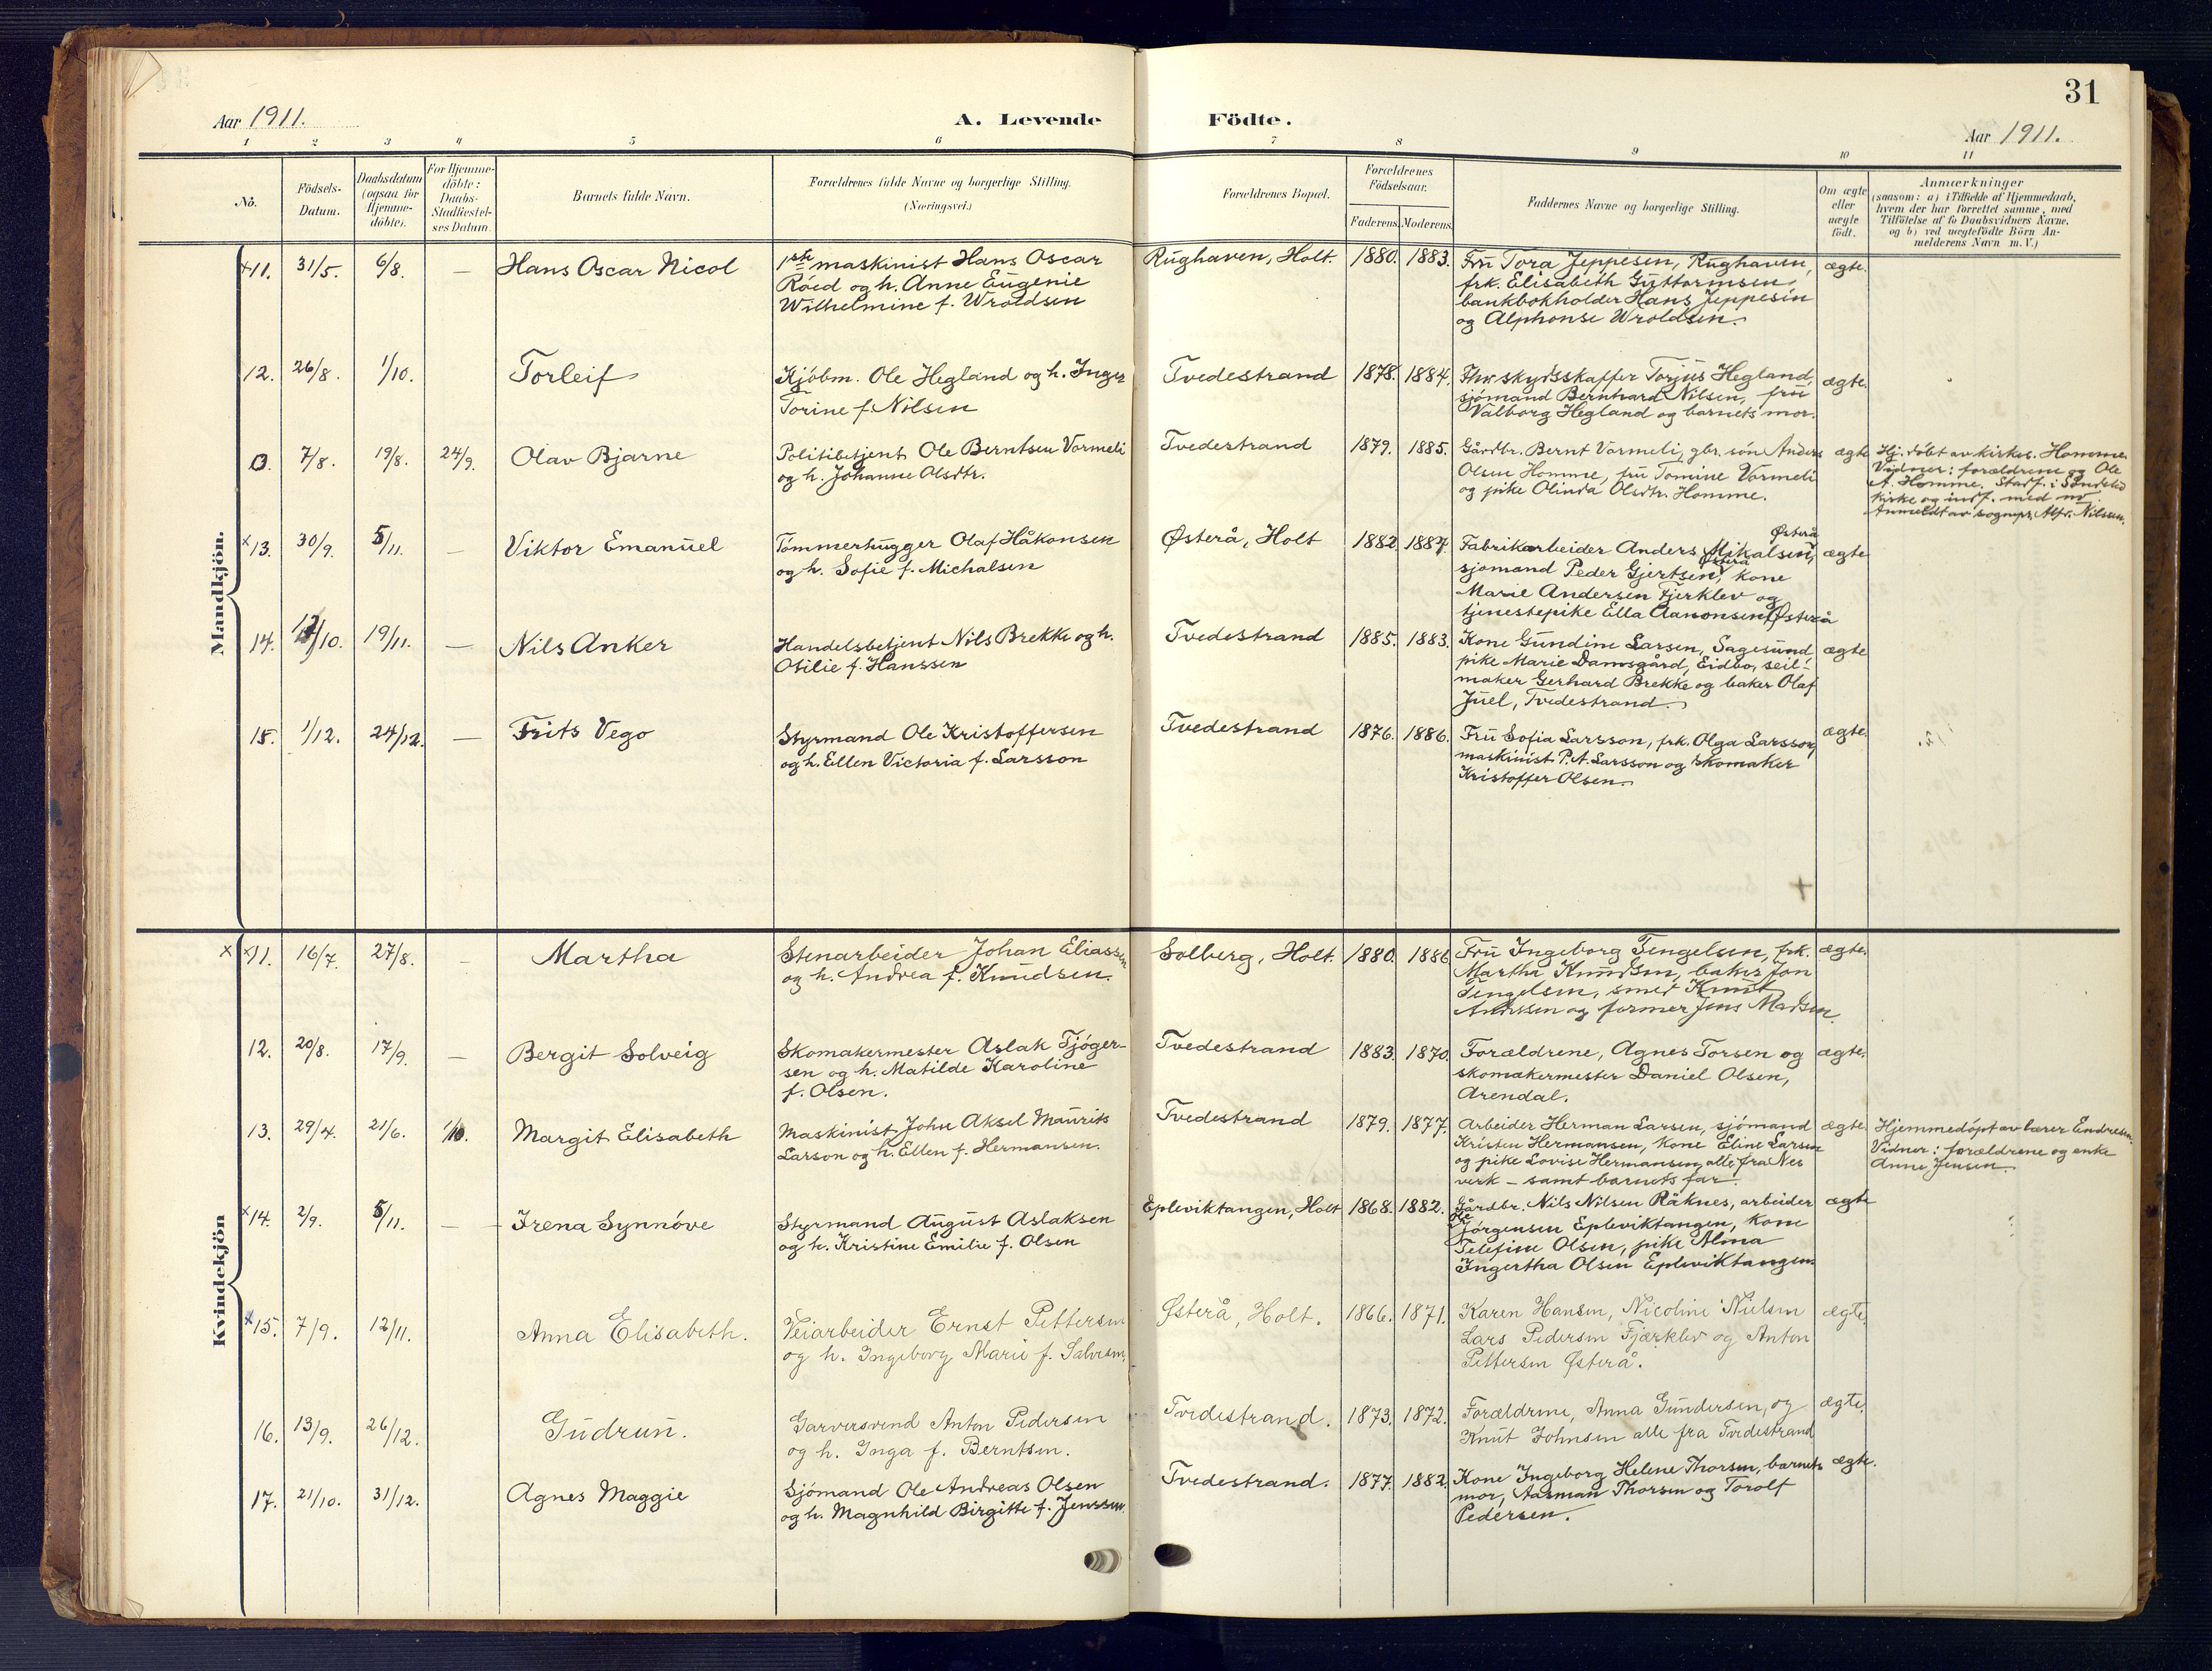 31
Aar 1911.
A. Levende Födte.
Aar 1911.
1 2 3 4 5 6 7 8 9 10 11
No.
Födsels-Datum.
Daabsdatum (ogsaa for Hjemmedöbte).
For Hjemmedöbte: Daabs-Stadfæstelses Datum.
Barnets fulde Navn.
Forældrenes fulde Navne og borgerlige Stilling.
(Næringsvei.)
Forældrenes Bopæl.
Forældrenes Födselsaar.
Faderens. Moderens.
Faddernes Navne og borgerlige Stilling.
Om ægte eller uægte födt.
Anmærkninger
(saasom: a) i Tilfælde af Hjemmedaab,
hvem der har forrettet samme, med
Tilföielse af to Daabsvidners Navne,
og b) ved uægtefödte Börn Anmelderens Navn m. V.)
Mandkjön.
×11. 31/5. 6/8. — Hans Oscar Nicol
1ste maskinist Hans Oscar
Röed og h. Anne Eugenie
Wilhelmine f. Wroldsen
Rughaven, Holt. 1880. 1883.
Fru Tora Jeppesen, Rughaven,
frk. Elisabeth Guttormsen,
bankbokholder Hans Jeppesen
og Alphonse Wroldsen.
ægte.
12. 26/8. 1/10. Torleif
Kjöbm. Ole Hegland og h. Inger
Torine f. Nilsen
Tvedestrand 1878. 1884.
skydsskaffer Torjus Hegland,
sjömand Bernhard Nilsen, fru
Valborg Hegland og barnets mor.
ægte.
0. 7/8. 19/8. 24/9. Olav Bjarne
Politibetjent Ole Berntsen Vormeli
og h. Johanne Olsdtr.
Tvedestrand 1879. 1885.
Gårdbr. Bernt Vormeli, gbr. sön Anders
Olsen Homme, fru Tomine Vormeli
og pike Olinda Olsdtr. Homme.
ægte
Hj. döbt av kirkes. Homme.
Vidner: forældrene og Ole
A. Homme. Stadf. i Söndeled
kirke og indf. med no
Anmeldt av sognepr. Alfr. Nilsen.
×13. 30/9. 5/11. — Viktor Emanuel
Tömmerhugger Olaf Håkonsen
og h. Sofie f. Michalsen
Østerå, Holt 1882 1887
Fabrikarbeider Anders Mikalsen, Østerå
sjömand Peder Gjertsen, Østerå kone
Marie Andersen Fjerklev og
tjenestepike Ella Aanonsen Østerå
ægte
14. /10. 19/11. — Nils Anker
Handelsbetjent Nils Brekke og h.
Otilie f. Hanssen
Tvedestrand 1885. 1883.
Kone Gundine Larsen, Sagesund
pike Marie Damsgård, Eidbo, seil-
maker Gerhard Brekke og baker Olaf
Juel, Tvedestrand.
ægte
15. 1/12. 24/12. — Frits Vego
Styrmand Ole Kristoffersen
og h. Ellen Victoria f. Larsson
Tvedestrand 1876. 1886.
Fru Sofia Larsson, frk. Olga Larsson,
maskinist P. A. Larsson og skomaker
Kristoffer Olsen.
ægte.
Kvindekjön
× ×11. 16/7. 27/8. – Martha
Stenarbeider Johan Eliassen
og h. Andrea f. Knudsen.
Solberg, Holt. 1880. 1886
Fru Ingeborg Tengelsen, frk.
Martha Knudsen, baker Jon
Tengelsen, smed Knut
og former Jens Madsen.
ægte.
12. 20/8. 17/9. — Bergit Solveig
Skomakermester Aslak Tjöger-
sen og h. Matilde Karoline
f. Olsen.
Tvedestrand 1883. 1870.
Forældrene, Agnes Torsen og
skomakermester Daniel Olsen,
Arendal.
ægte.
13. 29/4. 21/6. 1/10. Margit Elisabeth
Maskinist John Aksel Maurits
Larson og h. Ellen f. Hermansen.
Tvedestrand 1879. 1877.
Arbeider Herman Larsen, sjömand
Kristen Hermansen, kone Eline Larsen
og pike Lovise Hermansen, alle fra Nes
verk – samt barnets far.
ægte.
Hjemmedöpt av lærer Endresen.
Vidner: forældrene og enke
Anne Jensen.
×14. 2/9. 5/11. — Irena Synnöve
Styrmand August Aslaksen
og h. Kristine Emilie f. Olsen
Epleviktangen, Holt 1868. 1882.
Gårdbr. Nils Nilsen Råknes, arbeider
Ole Jörgensen Epleviktangen, kone
Telefine Olsen, pike Alma
Ingertha Olsen Epleviktangen
ægte
×15. 7/9. 12/11. Anna Elisabeth.
Veiarbeider Ernst Pettersen
og h. Ingeborg Marie f. Salvesen.
Østerå, Holt. 1866. 1871.
Karen Hansen, Nicoline Nielsen
Lars Pedersen Fjærklev og Anton
Pettersen Østerå.
ægte.
16. 13/9. 26/12. Gudrun.
Garversvend Anton Pedersen
og h. Inga f. Berntsen.
Tvedestrand. 1873. 1872.
Forældrene, Anna Gundersen, og
Knut Johnsen alle fra Tvedestrand
ægte.
17. 21/10. 31/12. Agnes Maggie
Sjömand Ole Andreas Olsen
og h. Magnhild Birgitte f. Jenssen.
Tvedestrand. 1877. 1882
Kone Ingeborg Helene Thorsen, barnets
mor, Aasman Thorsen og Torolf
Pedersen.
ægte.